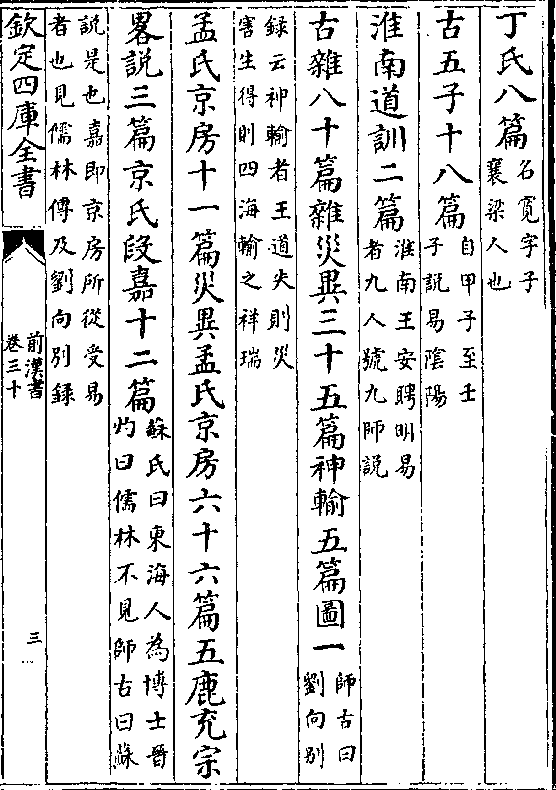 丁氏八篇名寬字子
襄梁人也
古五子十八篇自甲子至壬
子說易陰陽
淮南道訓二篇淮南王安聘明易
者九人號九師說
古雜八十篇雜災異三十五篇神輸五篇圖一師古曰
劉向别
録云神輸者王道失則災
害生得則四海輸之祥瑞
孟氏京房十一篇災異孟氏京房六十六篇五鹿充宗
畧說三篇京氏段嘉十二篇蘇氏曰東海人為博士晉
灼曰儒林不見師古曰蘇
說是也嘉即京房所從受易
者也見儒林傳及劉向别録
欽定四庫全書
前漢書
卷三十
三